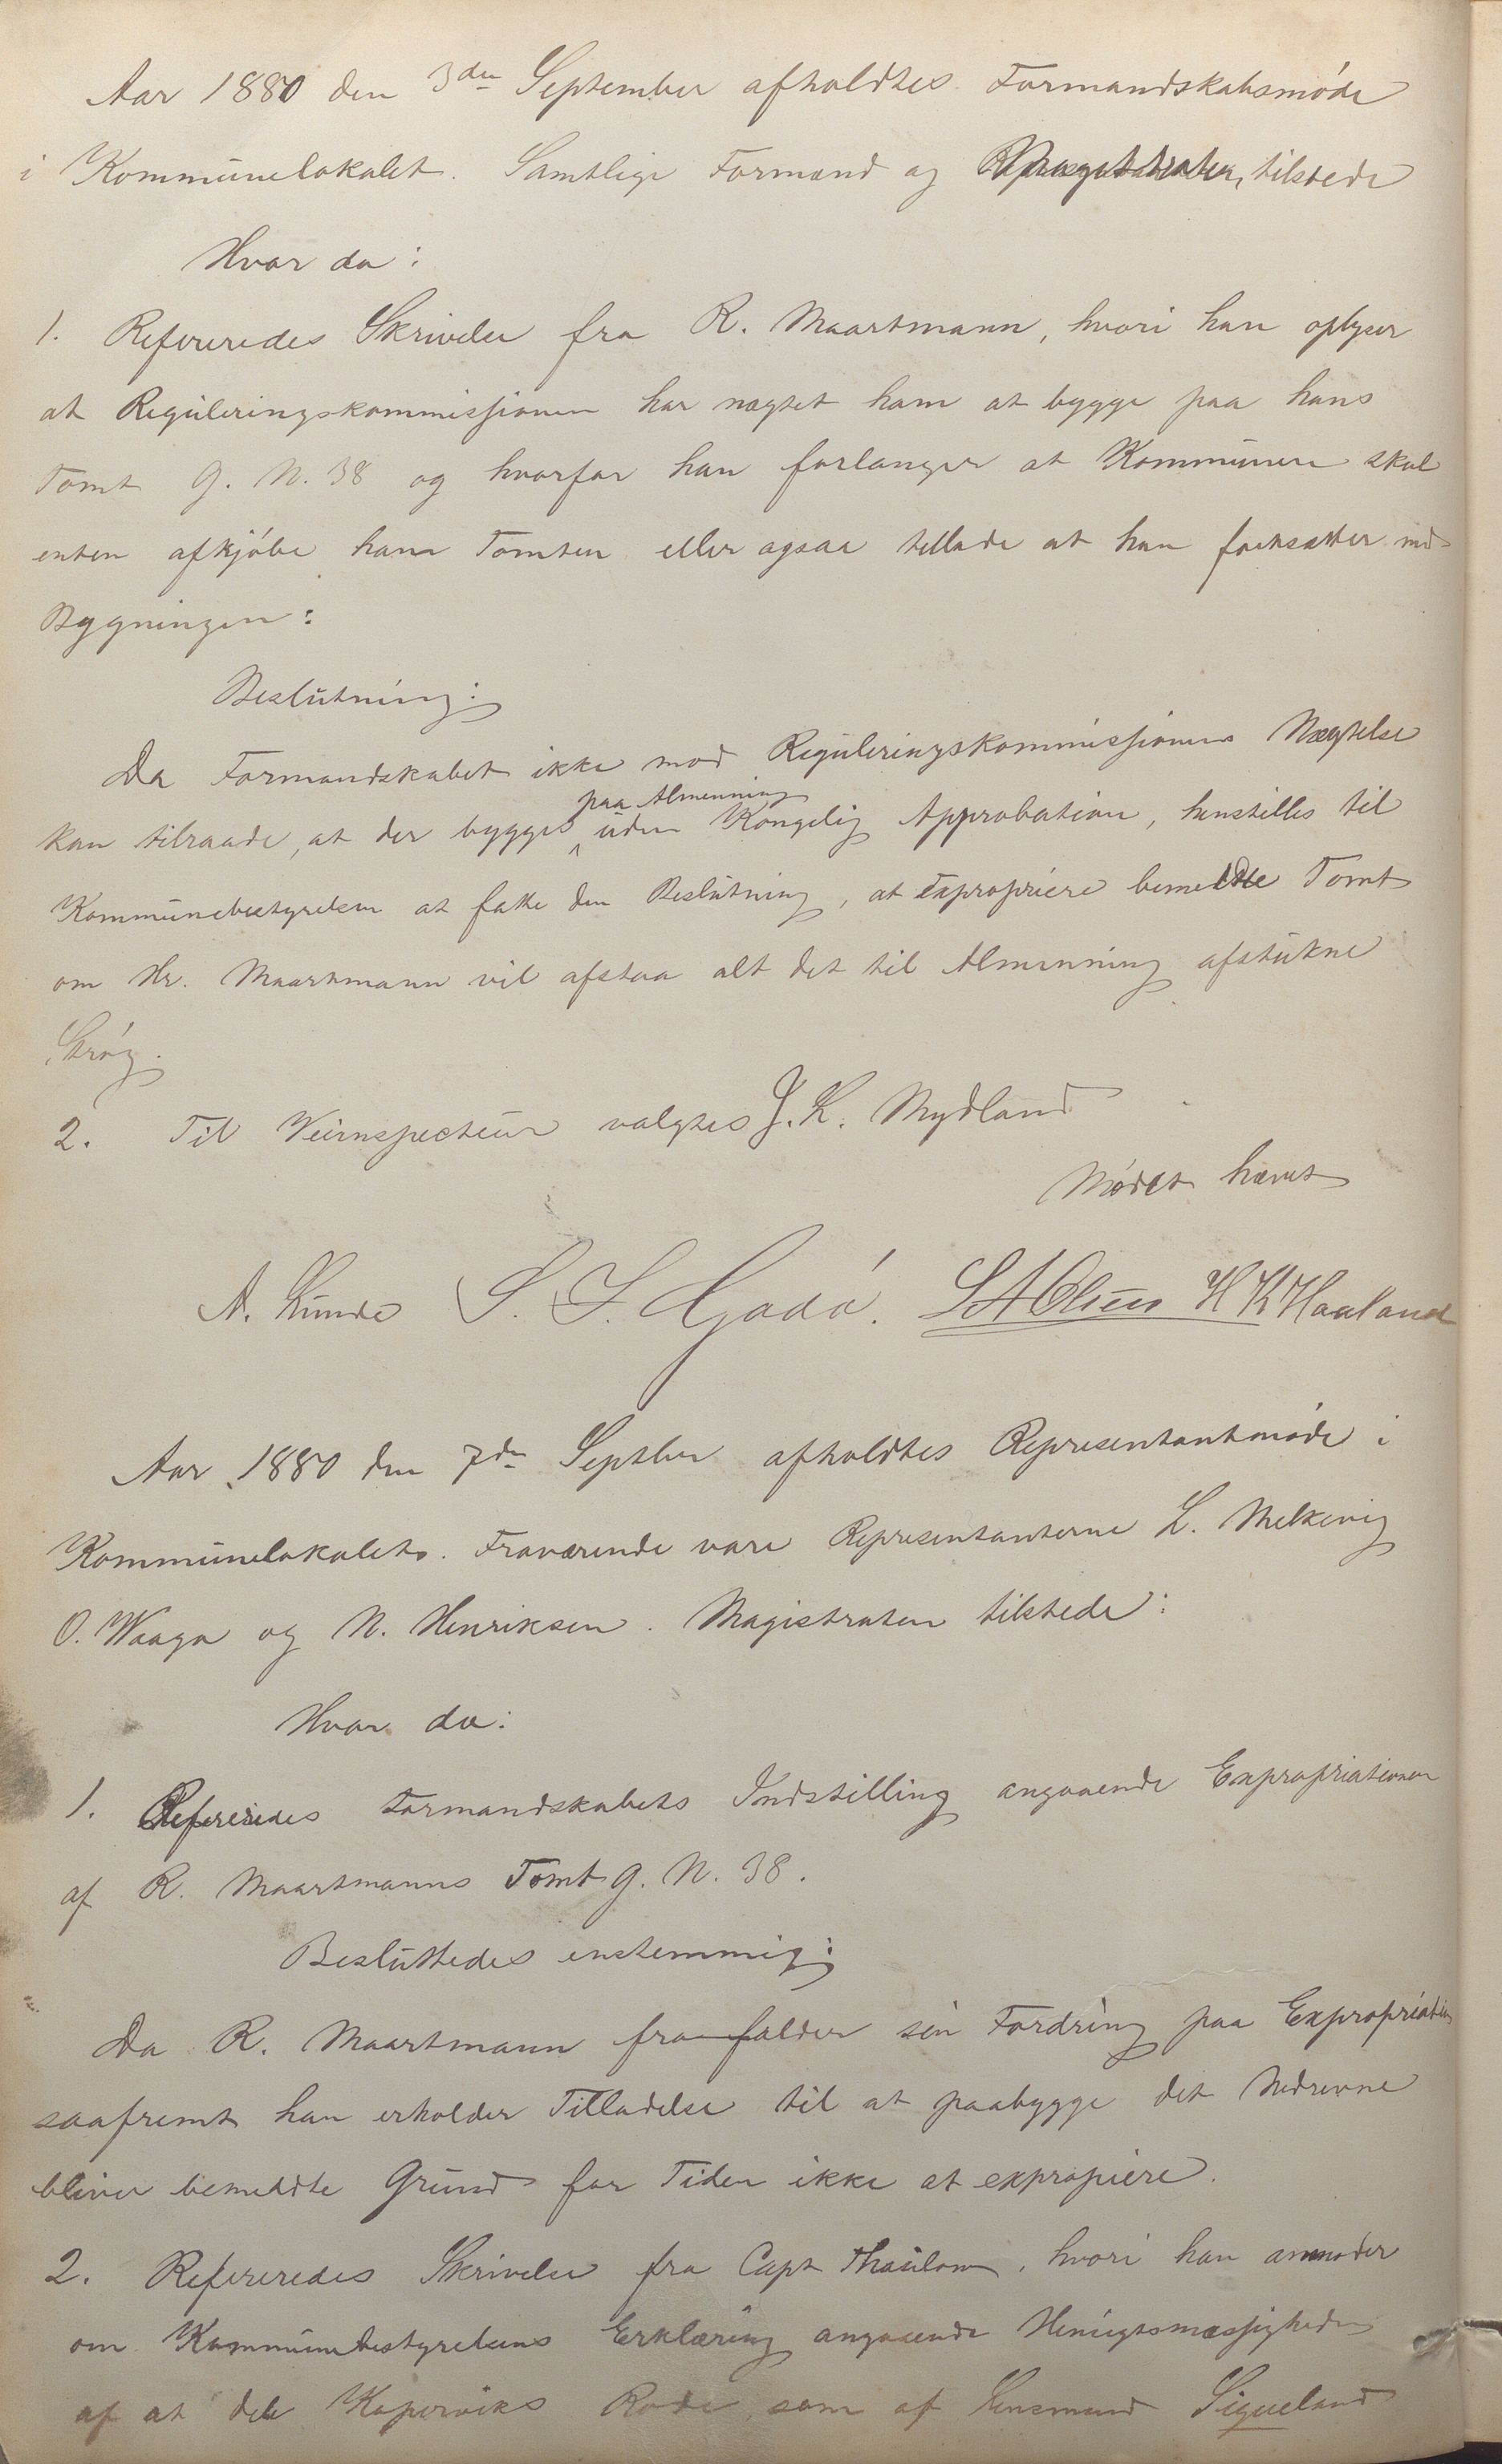 Aar 1880 den 3den September afholdtes Formandskabsmöde
i Kommunelokalet. Samtlige Formænd og tilstede
Hvor da:
1. Refereredes Skrivelse fra R. Maartmann, hvori han oplyser
at Reguleringskommissionen har nægtet ham at bygge paa hans
Tomt G. N. 38 og hvorfor han forlanger at Kommunen skal
enten afkjöbe ham Tomten eller ogsaa tillade at han fortsætter med
Bygningen:
Beslutning:
Da Formandskabet ikke mod Reguleringskommissionens Nægtelse
kan tilraade, at der bygges paa Almenning uden Kongelig Approbation, henstilles til
Kommunebestyrelsen at fatte den Beslutning, at Expropriere bemeldte Tomt
om Hr. Maartmann vil afstaa alt det til Almenning afstukne
Strög.
2. Til Veiinspecteur valgtes J. K. Mydland
Mödet hævet
A. Kunde S. S. Gadö. H K Haaland
Aar 1880 den 7de Septber afholdtes Representantmöde i
Kommunelokalet. Fraværende vare Representanterne L. Melkevig
O. Waage og N. Henriksen. Magistraten tilstede:
Hvor da:
1. Refereredes Formandskabets Indstilling angaaende Expropriationen
af R. Maartmanns Tomt G. N. 38.
Besluttedes enstemmig:
Da R. Maartmann frafalder sin Fordring paa Expropriation
saafremt han erholder Tilladelse til at paabygge det Nedrevne
bliver bemeldte Grund for Tiden ikke at expropiere.
2. Refereredes Skrivelse fra Capt Thaulow, hvori han anmoder
om Kommunebestyrelsens Erklæring angaaende Hensigtsmæssigheden
af at dele Koperviks Rode, som af Lensmand Sigueland